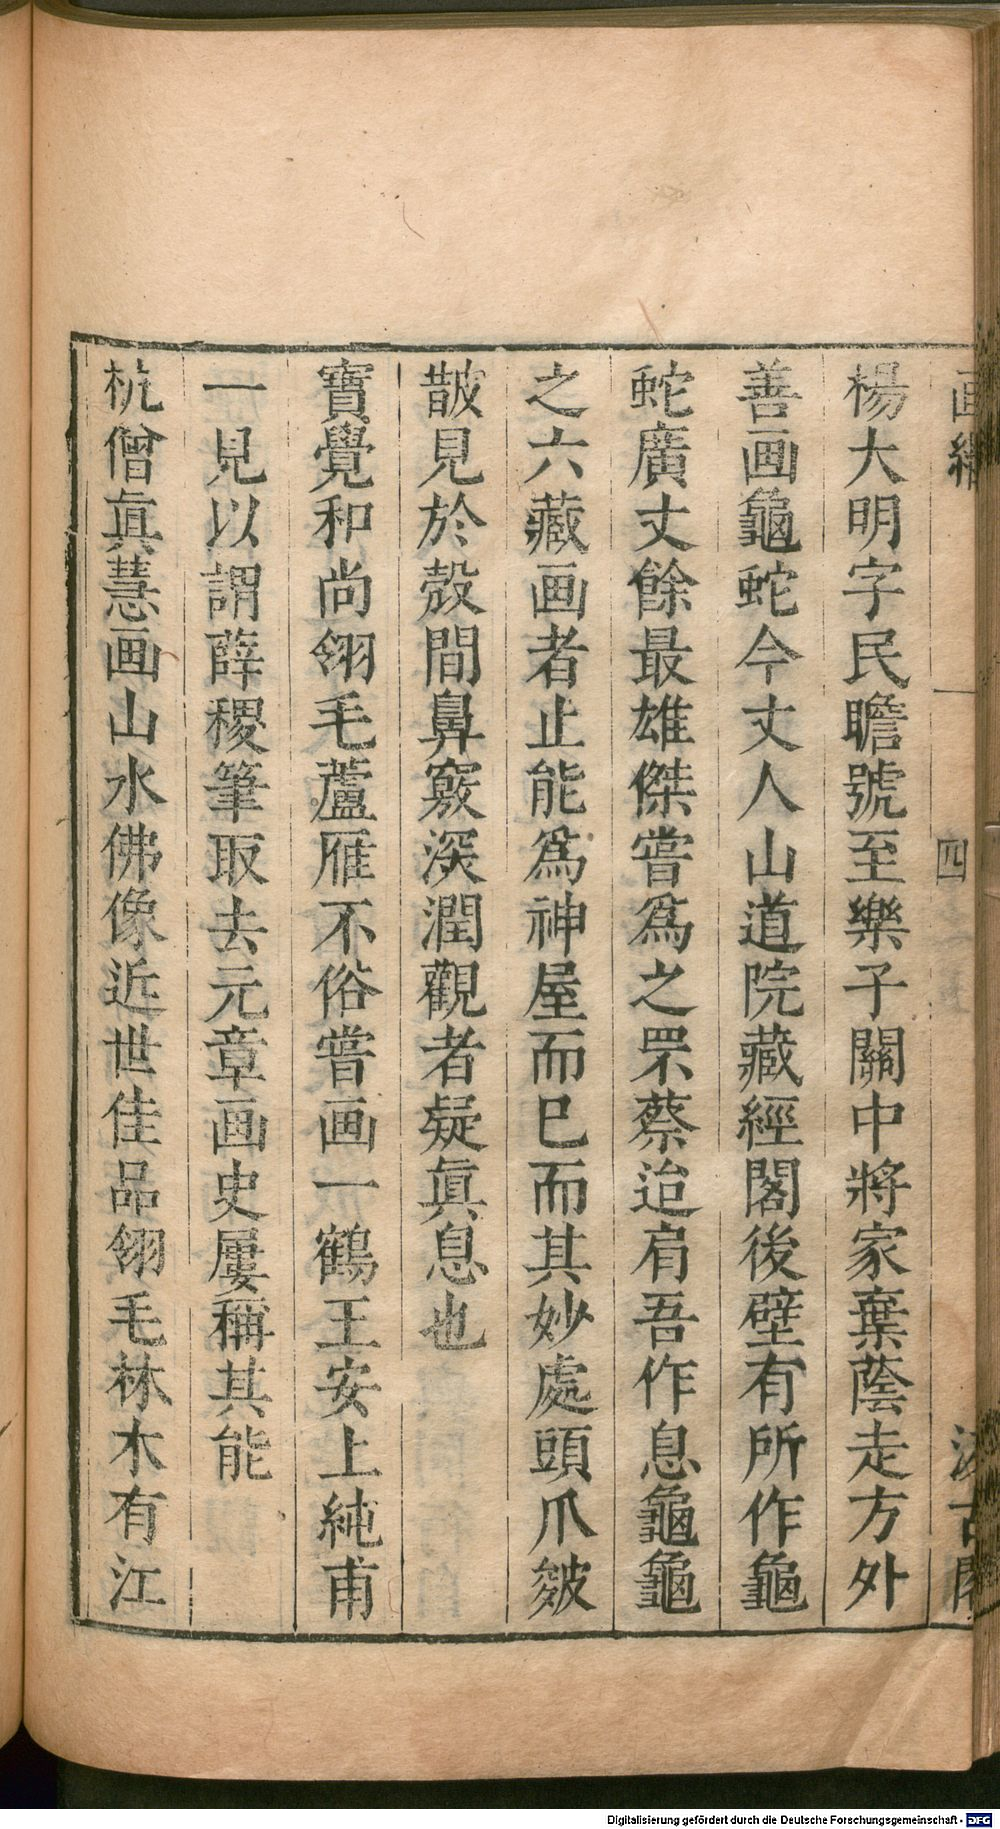 楊大明字民瞻號至樂子關中將家棄蔭走方外
善画龜蛇今丈人山道院藏經閣後壁有所作龜
蛇廣丈餘最雄傑嘗爲之罘蔡迨肩吾作息龜龜
之六藏画者止能爲神屋而巳而其妙處頭爪皴
皵見於殼間鼻竅深潤觀者疑眞息也
寶覺和尚翎毛蘆雁不俗嘗画一鶴王安上純甫
一見以謂薛稷筆取去元章画史屢稱其能
杭僧眞慧画山水佛像近世佳品翎毛林木有江
四
Digitalisierung gefördert durch die Deutsche Forschungsgemeinschaft - DFG